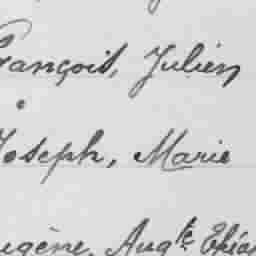 François, Julien
Joseph, Marie
Eugène, Aug<sup>te</sup>